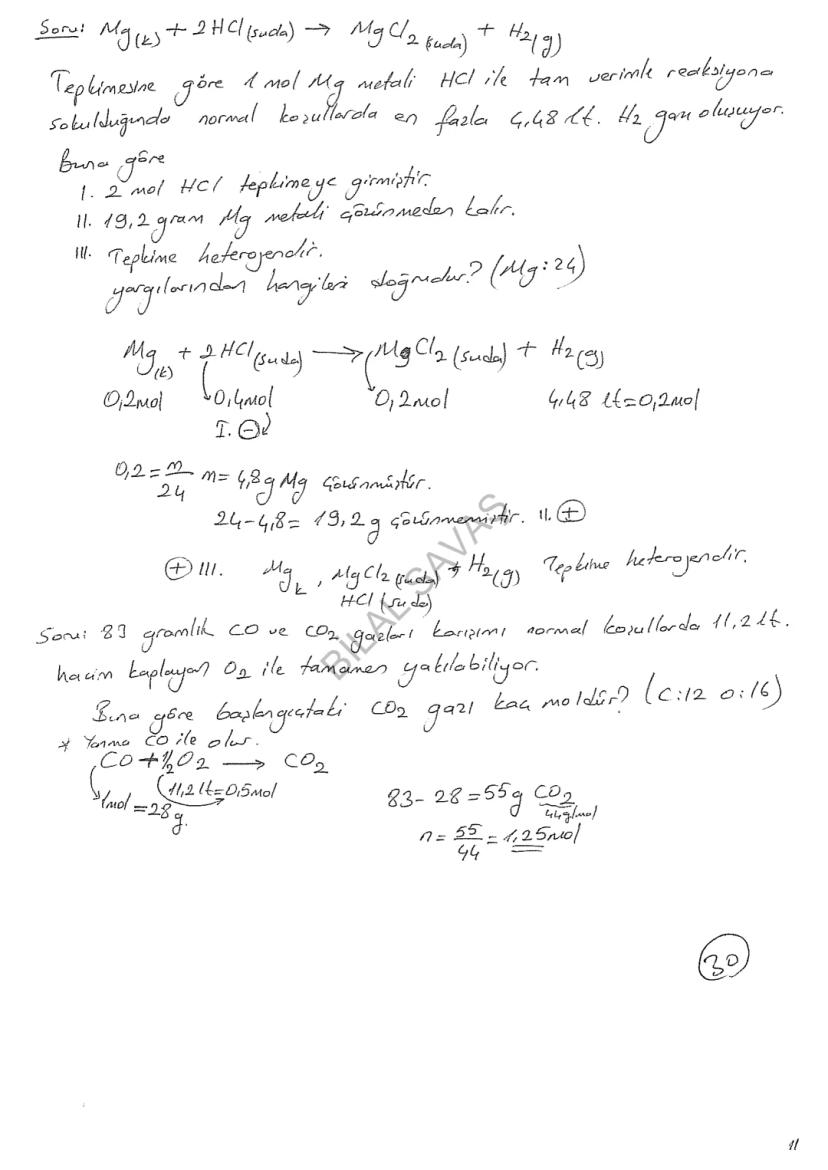 Soru: Mg(k) + 2HCl(suda) → MgCl2(suda) + H2(g)
Tepkimesine göre 1 mol Mg metali HCl ile tam verimle reaksiyona
sokulduğunda normal koşullarda en fazla 4,48 lt. H2 gazı oluşuyor.
Buna göre
I. 2 mol HCl tepkimeye girmiştir.
II. 19,2 gram Mg metali çözünmeden kalır.
III. Tepkime heterojendir.
yargılarından hangileri doğrudur? (Mg:24)
Mg(k) + 2HCl(suda) → MgCl2(suda) + H2(g)
0,2mol 0,4mol 0,2mol 4,48 lt=0,2mol
I. ⊖
0,2 = m/24 m= 4,8g Mg çözünmüştür.
24-4,8= 19,2g çözünmemiştir. II. ⊕
⊕ III. Mgk, MgCl2(suda) + H2(g) Tepkime heterojendir.
HCl(suda)
BİLAL SAVAŞ
Soru: 83 gramlık CO ve CO2 gazları karışımı normal koşullarda 11,2 lt.
hacim kaplayan O2 ile tamamen yakılabiliyor.
Buna göre başlangıçtaki CO2 gazı kaç moldür? (C:12 O:16)
* Yanma CO ile olur.
CO + 1/2O2 → CO2
11,2 lt=0,5mol
1mol = 28g.
83-28=55g CO2
44g/mol
n = 55/44 = 1,25mol
30
11